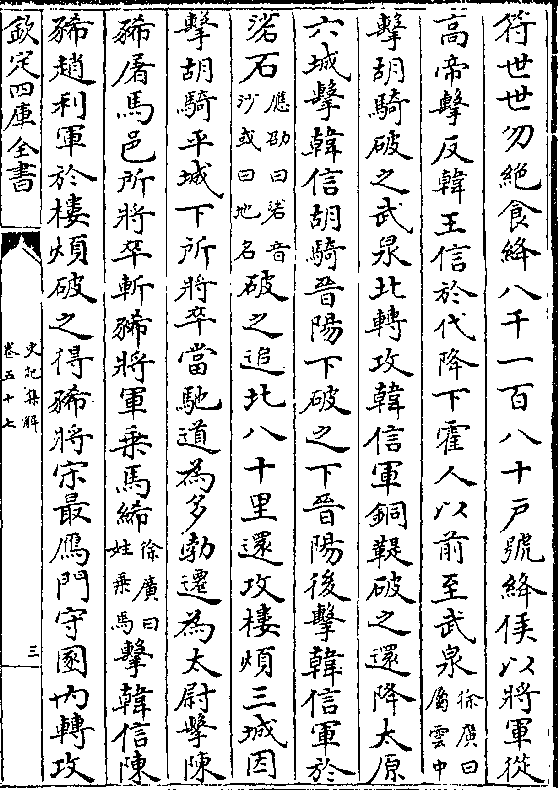 符世世勿絕食絳八千一百八十戸號絳侯以將軍從
高帝擊反韓王信於代降下霍人以前至武泉徐廣曰屬雲中
擊胡騎破之武泉北轉攻韓信軍銅鞮破之還降太原
六城擊韓信胡騎晉陽下破之下晉陽後擊韓信軍於
硰石應劭曰硰音沙或曰地名破之追北八十里還攻樓煩三城因
擊胡騎平城下所將卒當馳道為多勃遷為太尉擊陳
豨屠馬邑所將卒斬豨將軍乘馬絺徐廣曰姓乘馬擊韓信陳
豨趙利軍於樓煩破之得豨將宋最鴈門守圂内轉攻
欽定四庫全書
史記集解
卷五十七
三